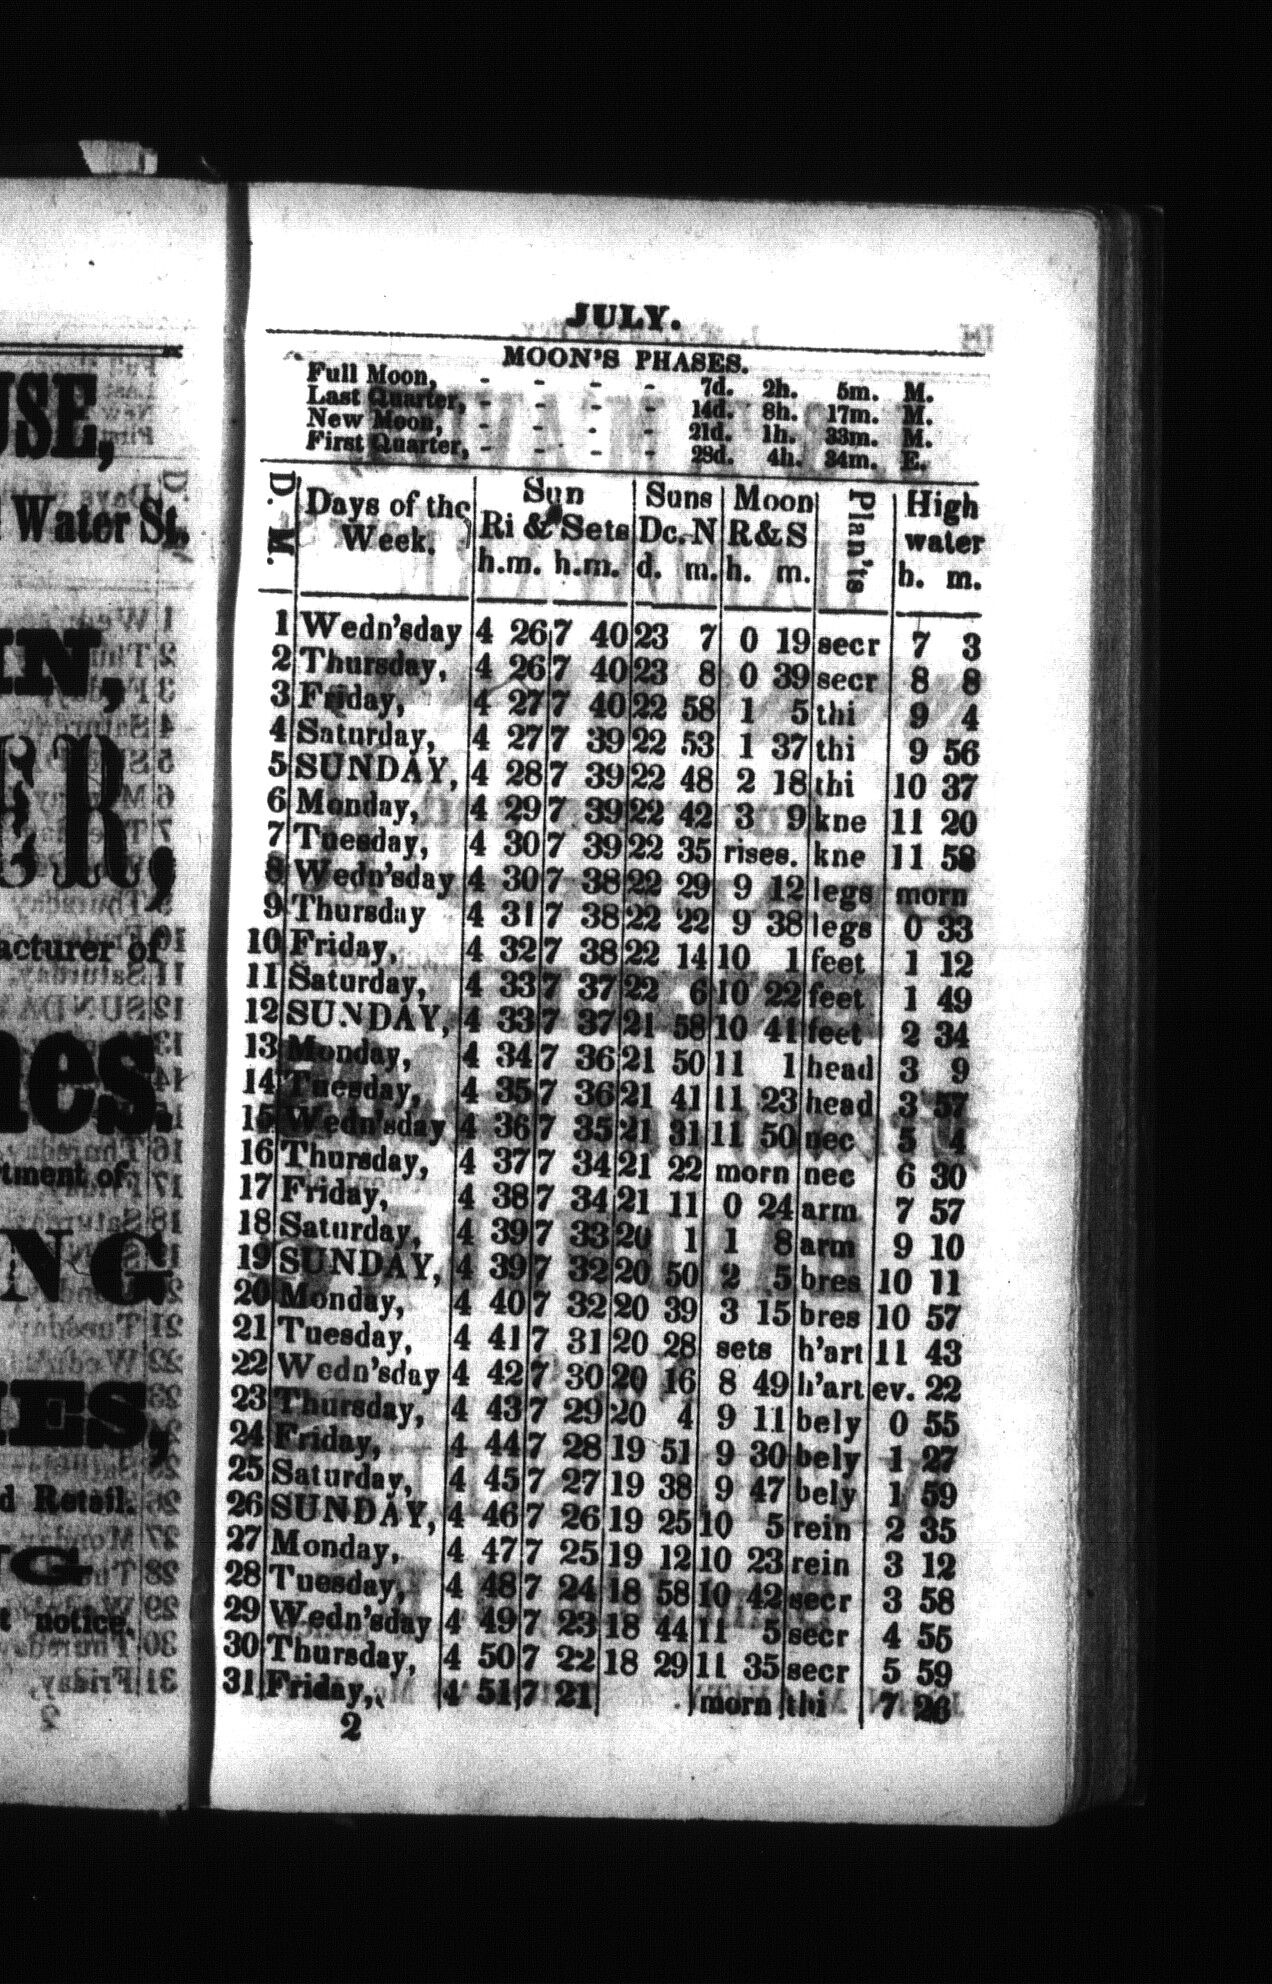 USE,
Water St.
IN,
ER,
acturer of
nes.
tment of
NG
IES,
d Retail.
NG
t notice.
JULY.
MOON'S PHASES.
Full Moon, - - - - 7d. 2h. 5m. M.
Last Quarter, - - - - 14d. 8h. 17m. M.
New Moon, - - - - 21d. 1h. 33m. M.
First Quarter, - - - - 28d. 4h. 34m. E.
D. M. Days of the Week. Sun Ri & Sets h.m. h.m. Suns Dc. N d. m. Moon R&S h. m. Plan'ts High water h. m.
1 Wedn'sday 4 26 7 40 23 7 0 19 secr 7 3
2 Thursday, 4 26 7 40 23 8 0 39 secr 8 8
3 Friday, 4 27 7 40 22 58 1 5 thi 9 4
4 Saturday, 4 27 7 39 22 53 1 37 thi 9 56
5 SUNDAY, 4 28 7 39 22 48 2 18 thi 10 37
6 Monday, 4 29 7 39 22 42 3 9 kne 11 20
7 Tuesday, 4 30 7 39 22 35 rises. kne 11 58
8 Wedn'sday 4 30 7 38 22 29 9 12 legs morn
9 Thursday 4 31 7 38 22 22 9 38 legs 0 33
10 Friday, 4 32 7 38 22 14 10 1 feet 1 12
11 Saturday, 4 33 7 37 22 6 10 22 feet 1 49
12 SUNDAY, 4 33 7 37 21 58 10 41 feet 2 34
13 Monday, 4 34 7 36 21 50 11 1 head 3 9
14 Tuesday, 4 35 7 36 21 41 11 23 head 3 57
15 Wedn'sday 4 36 7 35 21 31 11 50 nec 5 4
16 Thursday, 4 37 7 34 21 22 morn nec 6 30
17 Friday, 4 38 7 34 21 11 0 24 arm 7 57
18 Saturday, 4 39 7 33 20 1 1 8 arm 9 10
19 SUNDAY, 4 39 7 32 20 50 2 5 bres 10 11
20 Monday, 4 40 7 32 20 39 3 15 bres 10 57
21 Tuesday, 4 41 7 31 20 28 sets h'art 11 43
22 Wedn'sday 4 42 7 30 20 16 8 49 h'art ev. 22
23 Thursday, 4 43 7 29 20 4 9 11 bely 0 55
24 Friday, 4 44 7 28 19 51 9 30 bely 1 27
25 Saturday, 4 45 7 27 19 38 9 47 bely 1 59
26 SUNDAY, 4 46 7 26 19 25 10 5 rein 2 35
27 Monday, 4 47 7 25 19 12 10 23 rein 3 12
28 Tuesday, 4 48 7 24 18 58 10 42 secr 3 58
29 Wedn'sday 4 49 7 23 18 44 11 5 secr 4 55
30 Thursday, 4 50 7 22 18 29 11 35 secr 5 59
31 Friday, 4 51 7 21 morn thi 7 26
2